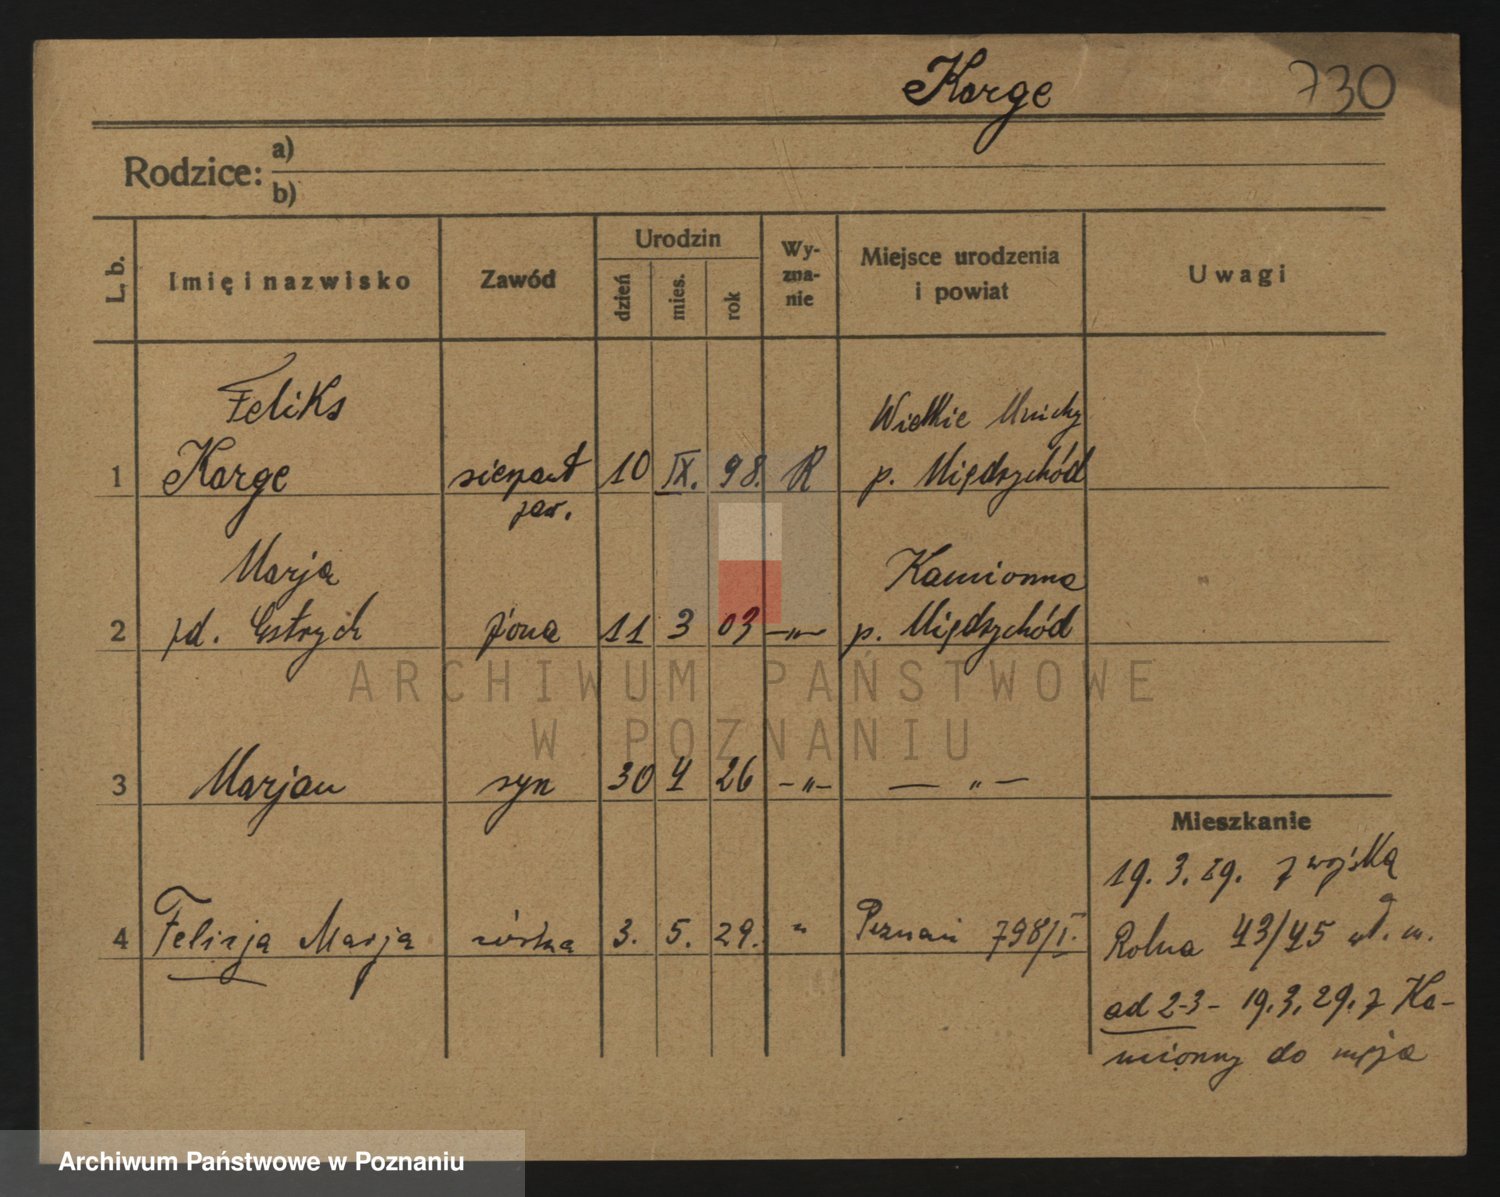 Karge 730
Rodzice: a)
b)
L. b. Imię i nazwisko Zawód Urodzin dzień mies. rok Wy-zna-nie Miejsce urodzenia i powiat Uwagi
Feliks Wielkie Mnichy
1 Karge sierżant 10 IX. 98. R p. Międzychód
zaw.
Marja Kamionna
2 zd. Estrych żona 11 3 03 —„— p. Międzychód
ARCHIWUM PAŃSTWOWE
W POZNANIU
3 Marjan syn 30 4 26 -„- — „ —
Mieszkanie
19. 3. 29. z wojska
4 Felicja Marja córka 3. 5. 29. " Poznań 798/I.
Rolna 43/45 wł. m.
ad 2-3 - 19.3.29. z Ka-
mionny do męża
Archiwum Państwowe w Poznaniu